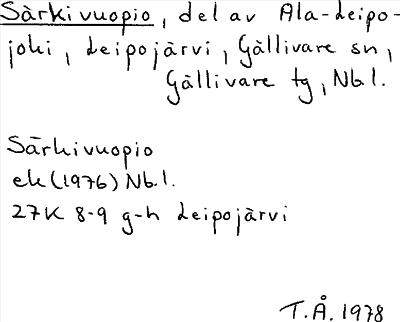 Särkivuopio, del av Ala-Leipo-
joki, Leipojärvi, Gällivare sn,
Gällivare tg, Nb.l.
Särkivuopio
ek (1976) Nb.l.
27K 8-9 g-h Leipojärvi
T.Å. 1978